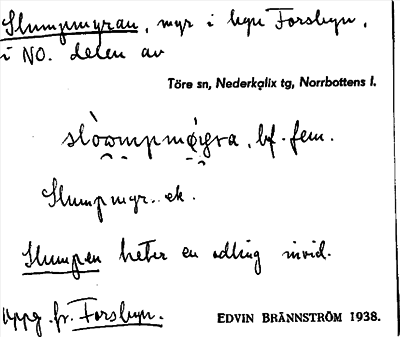 Slumpmyran, myr i byn Forsbyn,
i NO. delen av
Töre sn, Nederkalix tg, Norrbottens l.
slòwmpmø̀yra, bf. fem.
Slumpmyr.. ek.
Slumpen heter en odling invid.
Uppg. fr. Forsbyn.
EDVIN BRÄNNSTRÖM 1938.